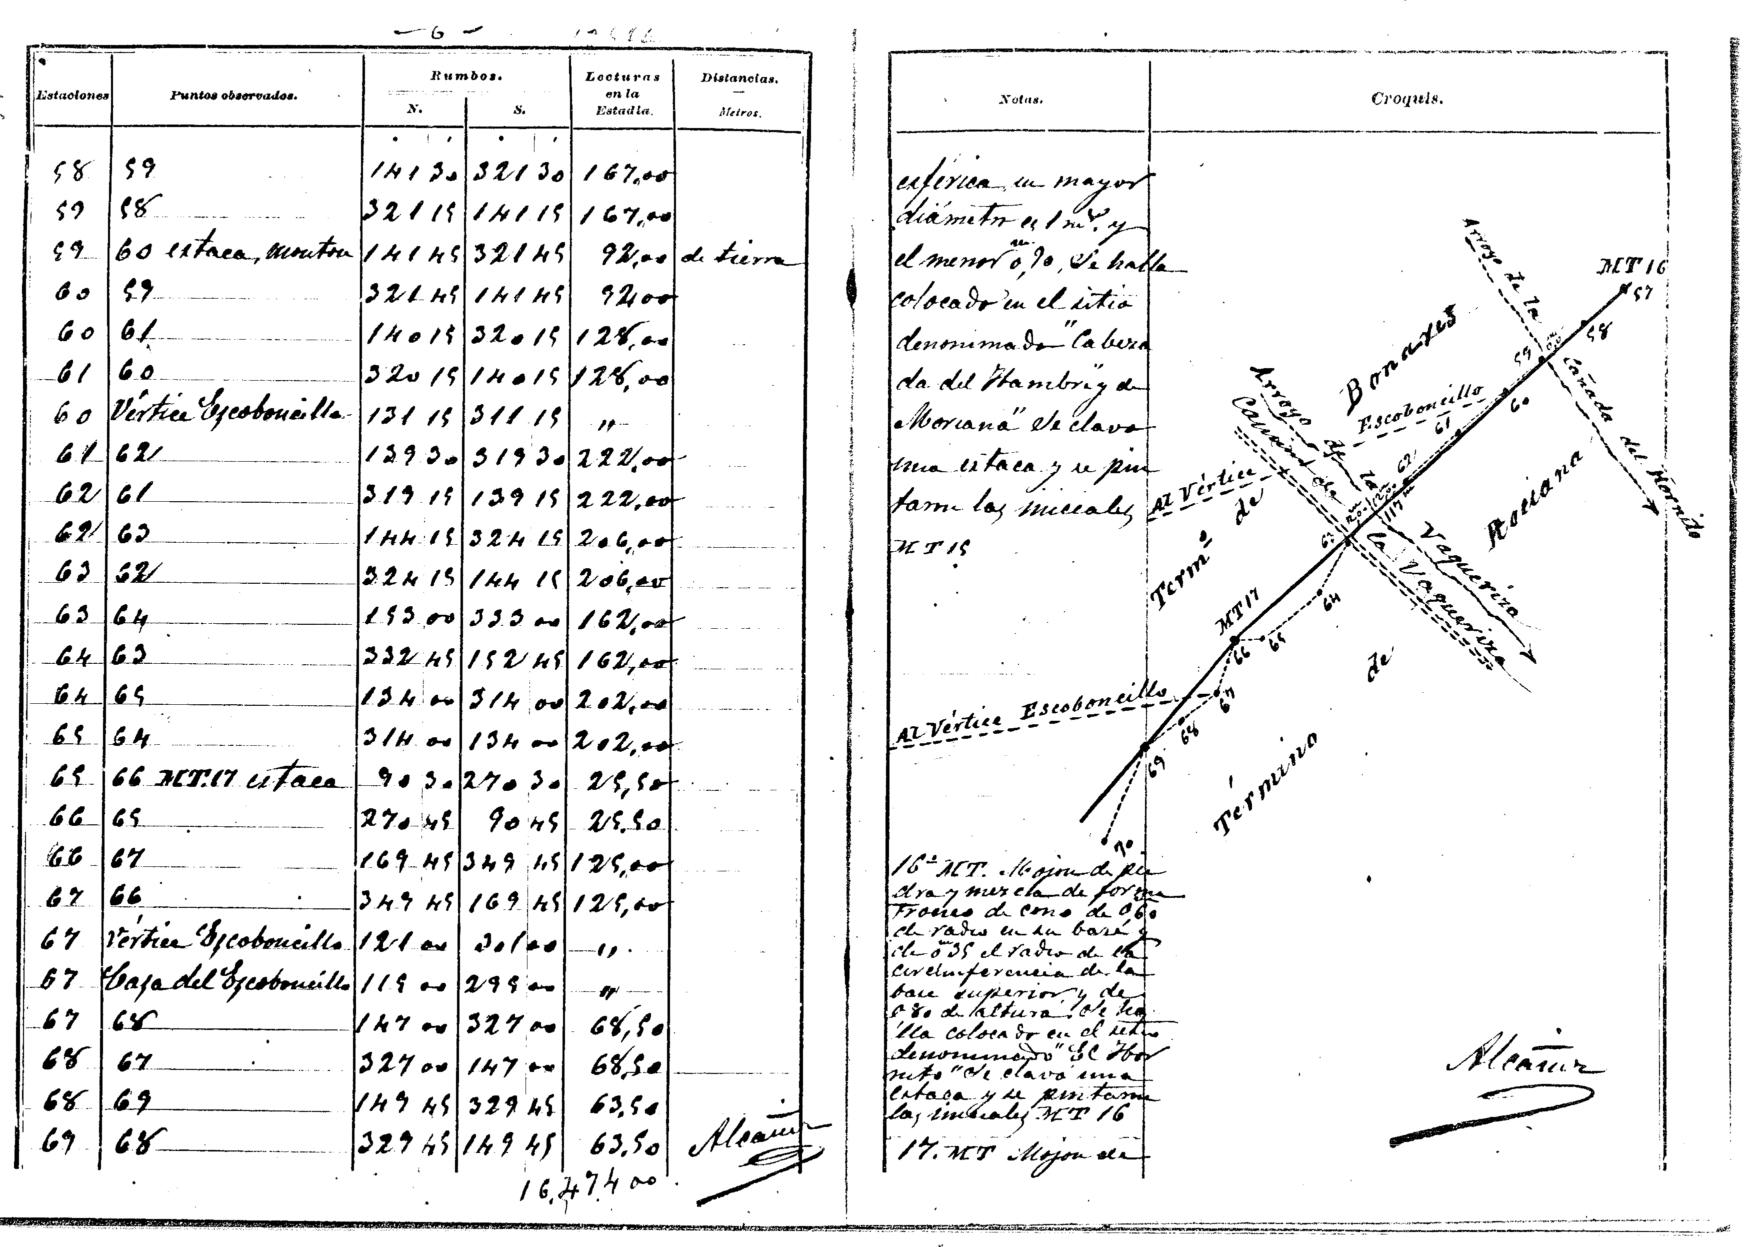 - 6 -
Estaciones Puntos observados. Rumbos. N. S. Lecturas en la Estadia. Distancias. Metros.
58 59 141 30 321 30 167,00
59 58 321 15 141 15 167,00
59 60 estaca, monton 141 45 321 45 92,00 de tierra
60 59 321 45 141 45 92,00
60 61 140 15 320 15 128,00
61 60 320 15 140 15 128,00
60 Vértice Escoboncillo 131 15 311 15 "
61 62 139 30 319 30 222,00
62 61 319 15 139 15 222,00
62 63 144 15 324 15 206,00
63 62 324 15 144 15 206,00
63 64 153 00 333 00 162,00
64 63 332 45 152 45 162,00
64 65 134 00 314 00 202,00
65 64 314 00 134 00 202,00
65 66 MT.17 estaca 90 30 270 30 25,50
66 65 270 45 90 45 25,50
66 67 169 45 349 45 125,00
67 66 349 45 169 45 125,00
67 Vértice Escoboncillo 121 00 301 00 "
67 Casa del Escoboncillo 115 00 295 00 "
67 68 147 00 327 00 68,50
68 67 327 00 147 00 68,50
68 69 149 45 329 45 63,50
69 68 329 45 149 45 63,50
Alcañiz
16,474 00
Notas. Croquis.
esférica, su mayor
diámetro es 1 m. y
el menor 0,90, se halla
colocado en el sitio
denominado "Cabeza
da del Hambri y de
Moriana" Se clavo
una estaca y se pin
taron las iniciales
MT 15
16ª MT. Mojon de pie
dra y mezcla de forma
Tronco de cono de 0m60
de radio en su base y
de 0m35 el radio de la
circunferencia de la
base superior y de
0 80 de altura. Se ha
lla colocado en el sitio
denominado "El Hor
nito" Se clavó una
estaca y se pintaron
las iniciales MT 16
17. MT Mojon de
Arroyo de la Cañada del Hornito
MT 16
57
58
59
60
61
62
63
64
65
66
67
68
69
70
Bonares
Term.o de
Arroyo de la Vaqueriza
Camino de la Vaqueriza
Al Vértice Escoboncillo
117 m
Rociana
MT 17
Al Vértice Escoboncillo
de
Término
Alcañiz